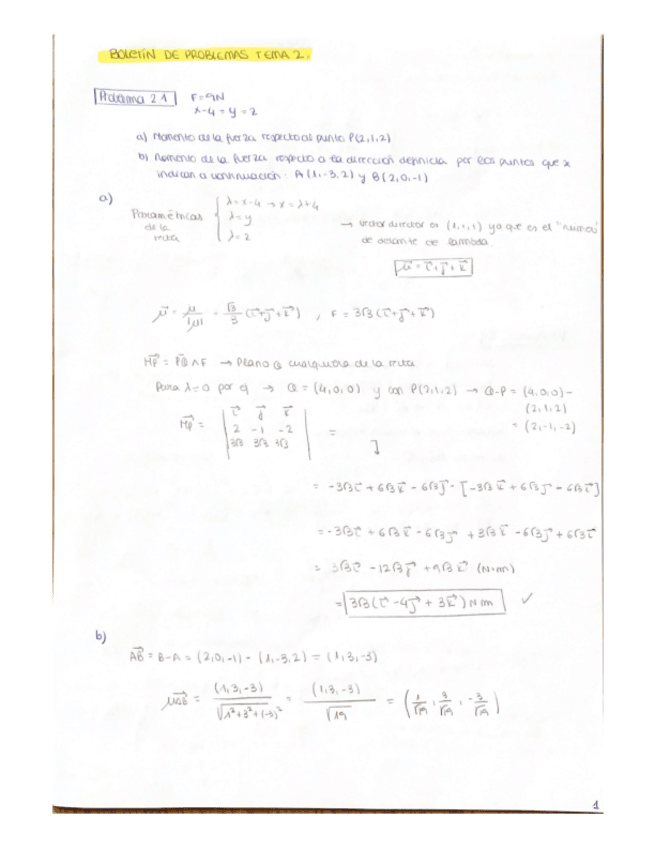 BOLETÍN DE PROBLEMAS TEMA 2.
Problema 2.1 F=9N
x-4=y=z
a) Momento de la fuerza respecto al punto P(2,1,2)
b) Momento de la fuerza respecto a la dirección definida por los puntos que se
indican a continuación: A(1,-3,2) y B(2,0,-1)
a)
Paramétricas de la recta { λ=x-4 → x=λ+4
λ=y
λ=z
→ vector director es (1,1,1) ya que es el "número"
de delante de lambda.
μ⃗ = i⃗+j⃗+k⃗
μ⃗ = μ/|μ| = √3/3 (i⃗+j⃗+k⃗) , F = 3√3(i⃗+j⃗+k⃗)
M⃗p = P⃗Q ∧ F → Q cualquiera de la recta
Para λ=0 por ej → Q = (4,0,0) y con P(2,1,2) → Q-P = (4,0,0)-
(2,1,2)
= (2,-1,-2)
M⃗p = | i⃗ j⃗ k⃗ |
| 2 -1 -2 | =
| 3√3 3√3 3√3 |
= -3√3i⃗ + 6√3k⃗ - 6√3j⃗ - [-3√3k⃗ + 6√3j⃗ - 6√3i⃗]
= -3√3i⃗ + 6√3k⃗ - 6√3j⃗ + 3√3k⃗ - 6√3j⃗ + 6√3i⃗
= 3√3i⃗ - 12√3j⃗ + 9√3k⃗ (N·m)
= 3√3(i⃗ - 4j⃗ + 3k⃗) N m ✓
b)
A⃗B = B-A = (2,0,-1) - (1,-3,2) = (1,3,-3)
μ⃗AB = (1,3,-3)/√(1²+3²+(-3)²) = (1,3,-3)/√19 = (1/√19, 3/√19, -3/√19)
1